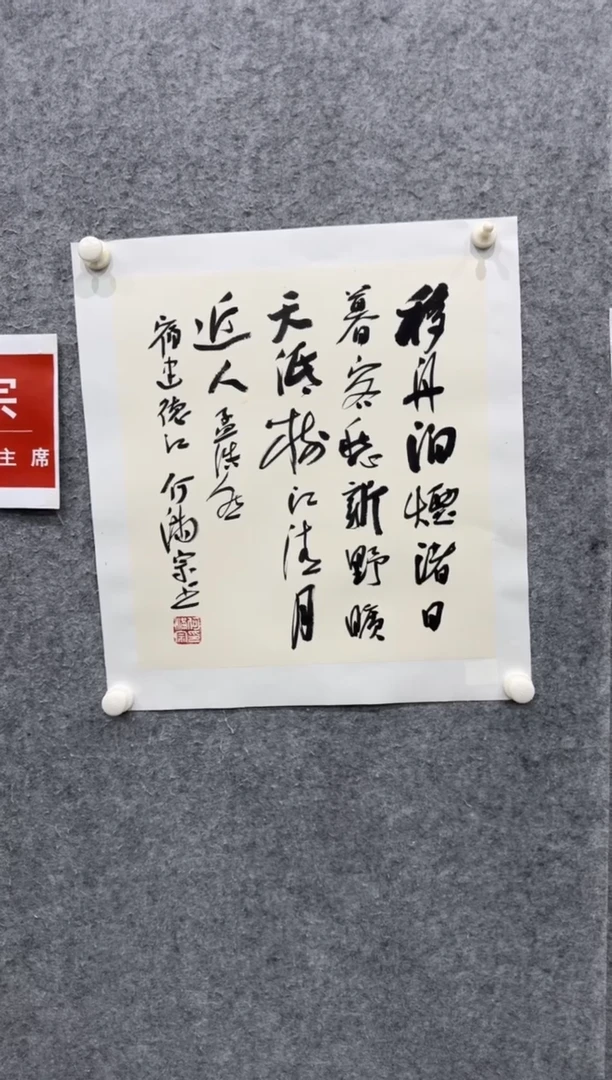 移舟泊煙渚日
暮客愁新野曠
天低樹江清月
近人 孟浩然
宿建德江 何滿宗书
宗
主席